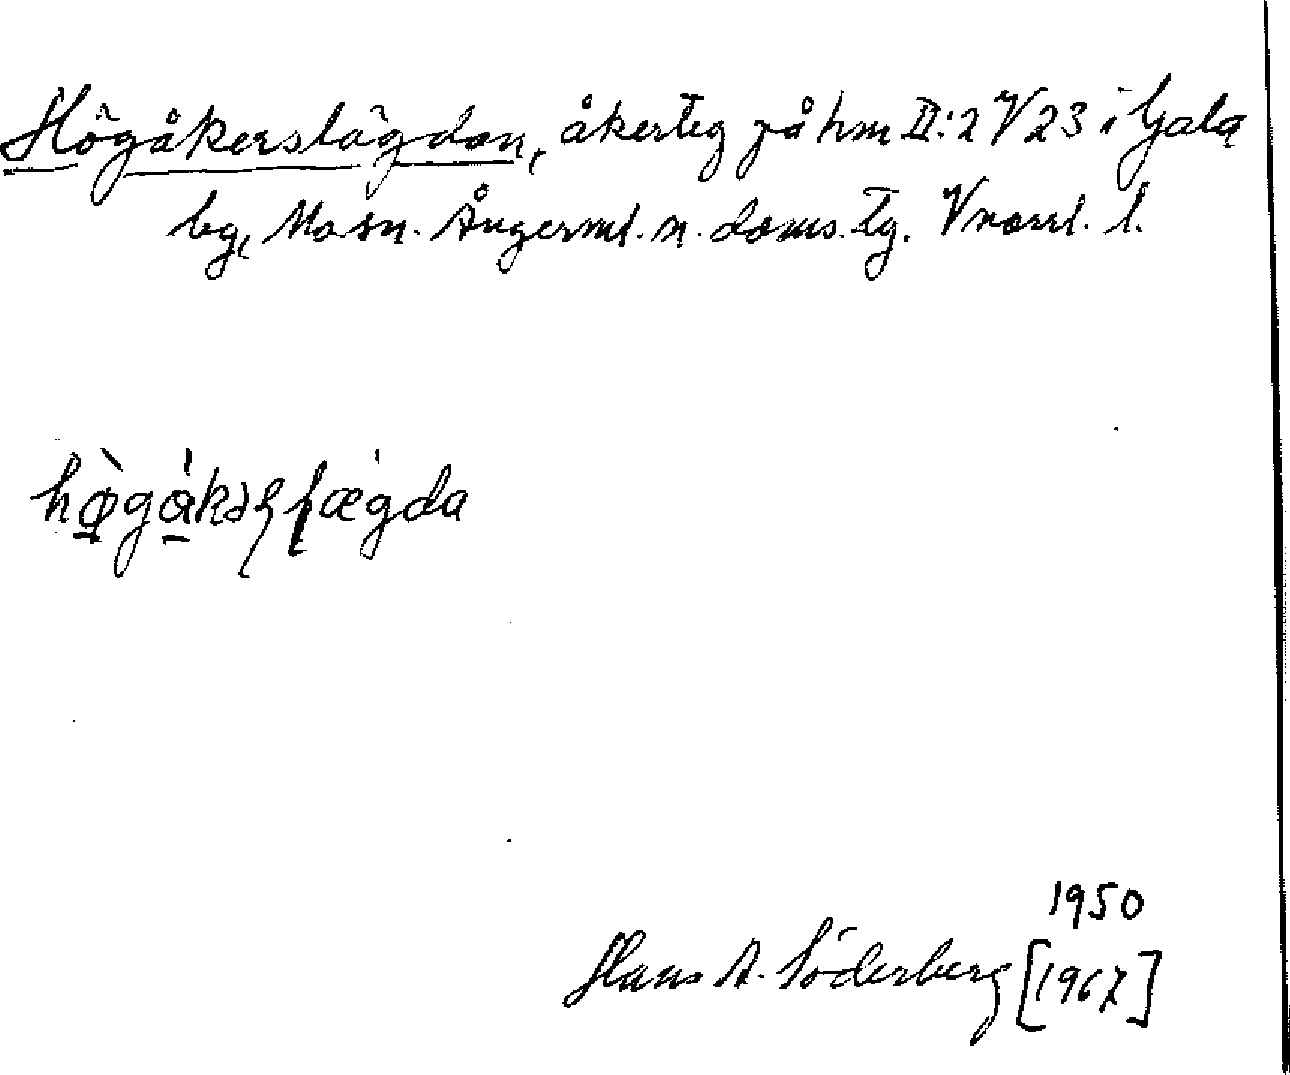 Högåkerslägdan, åkerteg på hm II:2 V23 i Gala
by, Mosn. Ångerml. n. doms. tg. Vnorrl. l.
hø̀gàkəȿɭægda
1950
Hans A. Söderberg [1967]